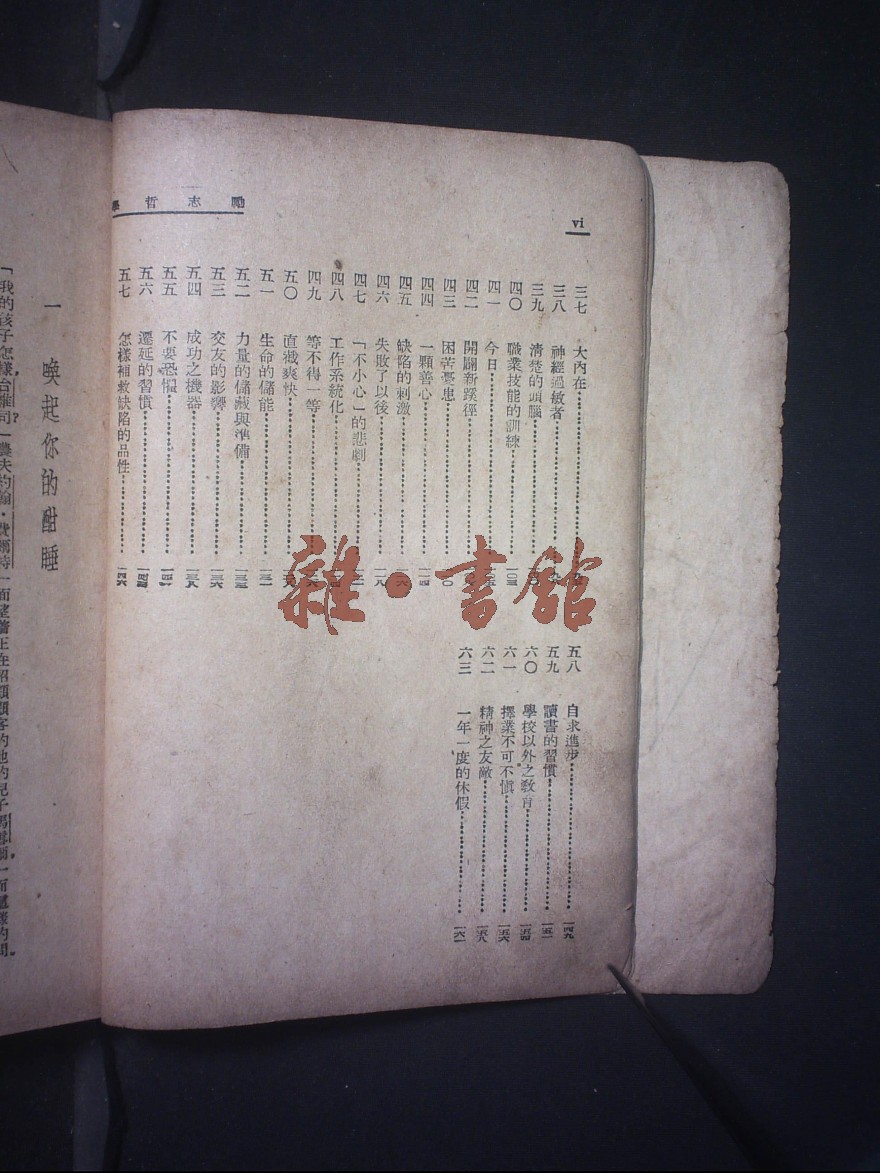 vi
勵志哲學
三七 大內在
三八 神經過敏者
三九 清楚的頭腦
四〇 職業技能的訓練
四一 今日
四二 開闢新蹊徑
四三 困苦憂患
四四 一顆善心
四五 缺陷的刺激
四六 失敗了以後
四七 「不小心」的悲劇
四八 工作系統化
四九 等不得一等
五〇 直截爽快
五一 生命的儲能
五二 力量的儲藏與準備 一三三
五三 交友的影響 一三六
五四 成功之機器 一三八
五五 不要恐懼 一四一
五六 遷延的習慣 一四四
五七 怎樣補救缺陷的品性 一四六
五八 自求進步 一四九
五九 讀書的習慣 一五一
六〇 學校以外之教育 一五四
六一 擇業不可不慎 一五六
六二 精神之友敵 一五八
六三 一年一度的休假 一六一
雜·書館
一 喚起你的酣睡
「我的孩子怎樣,台維司?」農夫約翰·費爾特一面望著正在招顧顧客的他的兒子馬歇爾,一面這樣的問